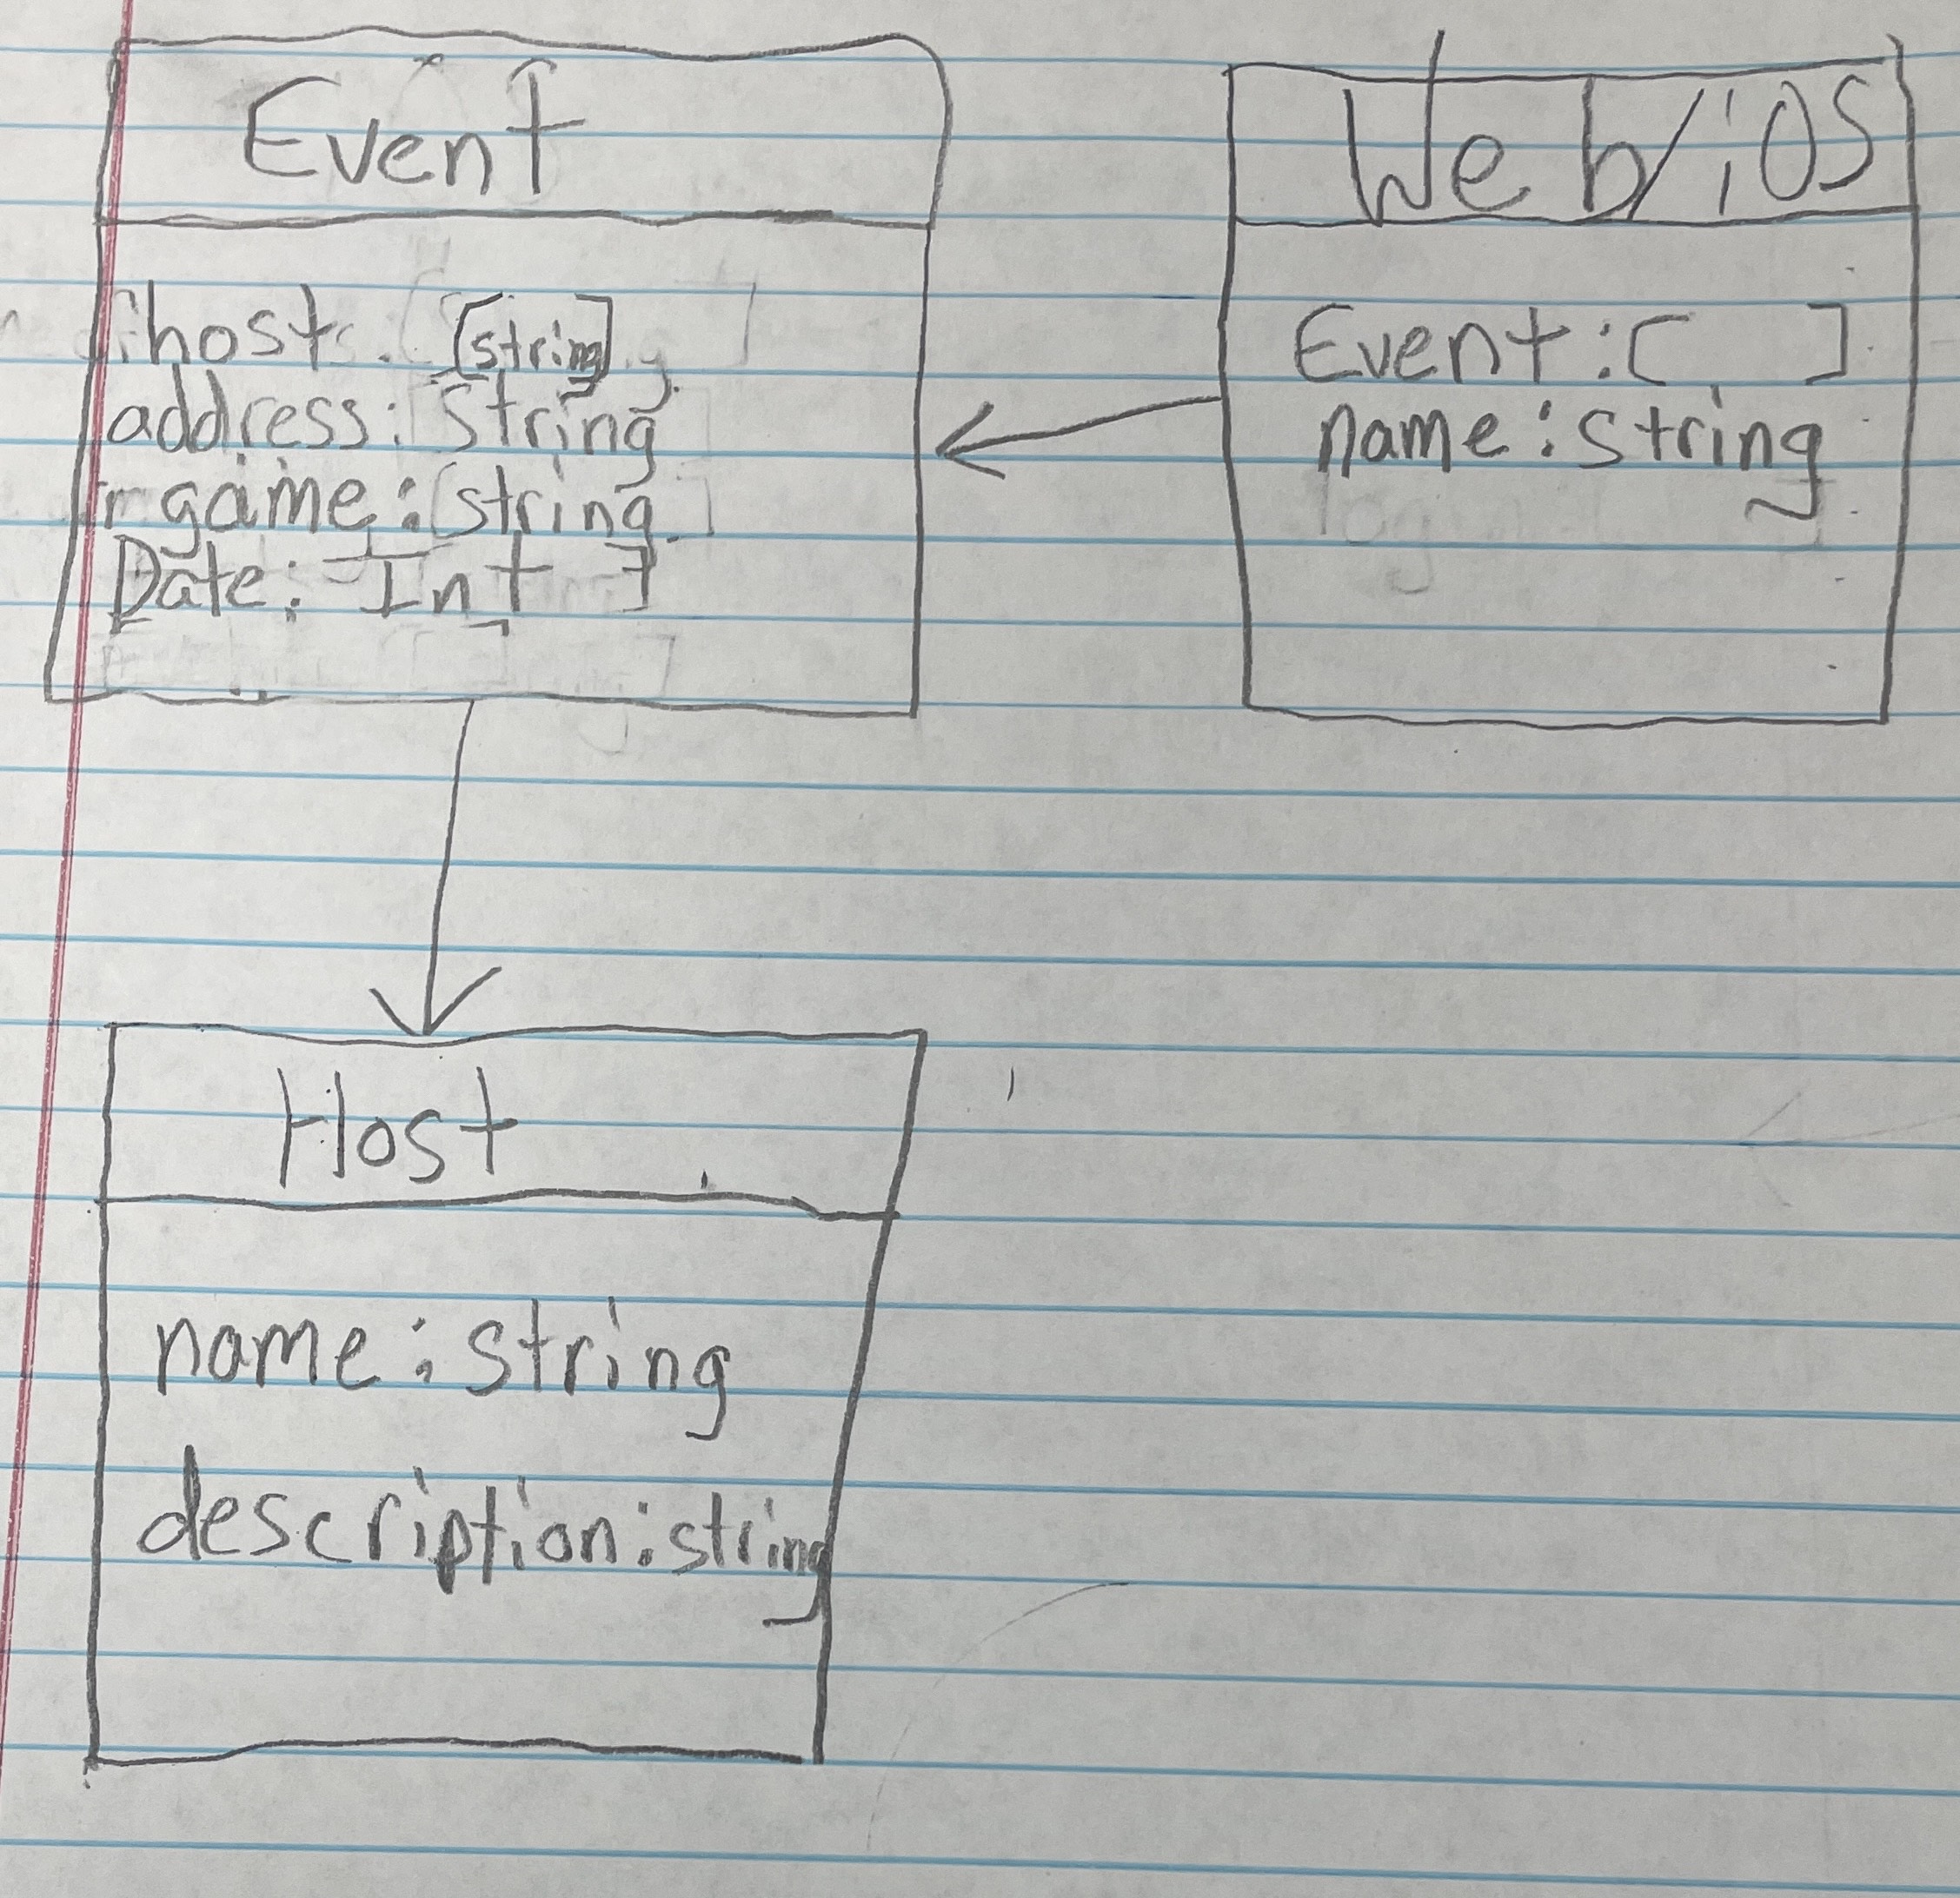 Event
host. [string]
address: String
game: [string]
Date: Int ]
Web/iOS
Event: [ ]
name: string
Host
name: string
description: string